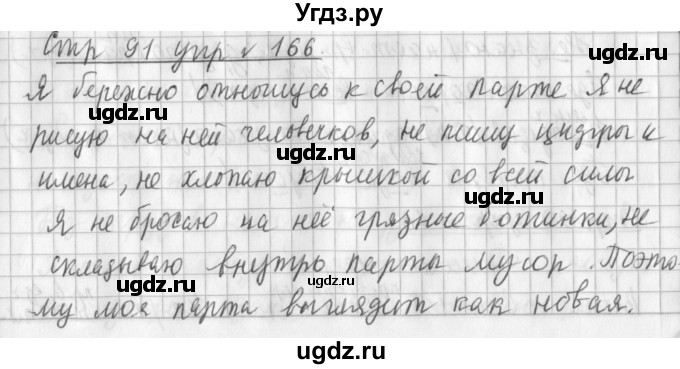 Угдз.ру
Стр 91 упр № 166.
Я бережно отношусь к своей парте Я не
рисую на ней человечков, не пишу цифры и
имена, не хлопаю крышкой со всей силы
Я не бросаю на неё грязные ботинки, не
складываю внутрь парты мусор. Поэто
му моя парта выглядит как новая.
ugdz.ru
ugdz.ru
ugdz.ru
ugdz.ru
ugdz.ru
ugdz.ru
ugdz.ru
ugdz.ru
ugdz.ru
ugdz.ru
ugdz.ru